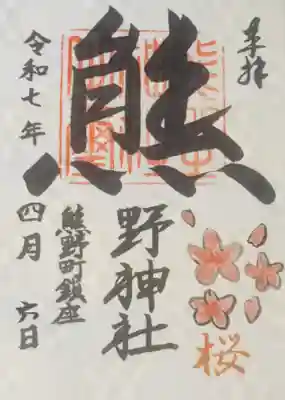 奉拝
熊
野神社
熊野町鎮座
令和七年四月六日
桜